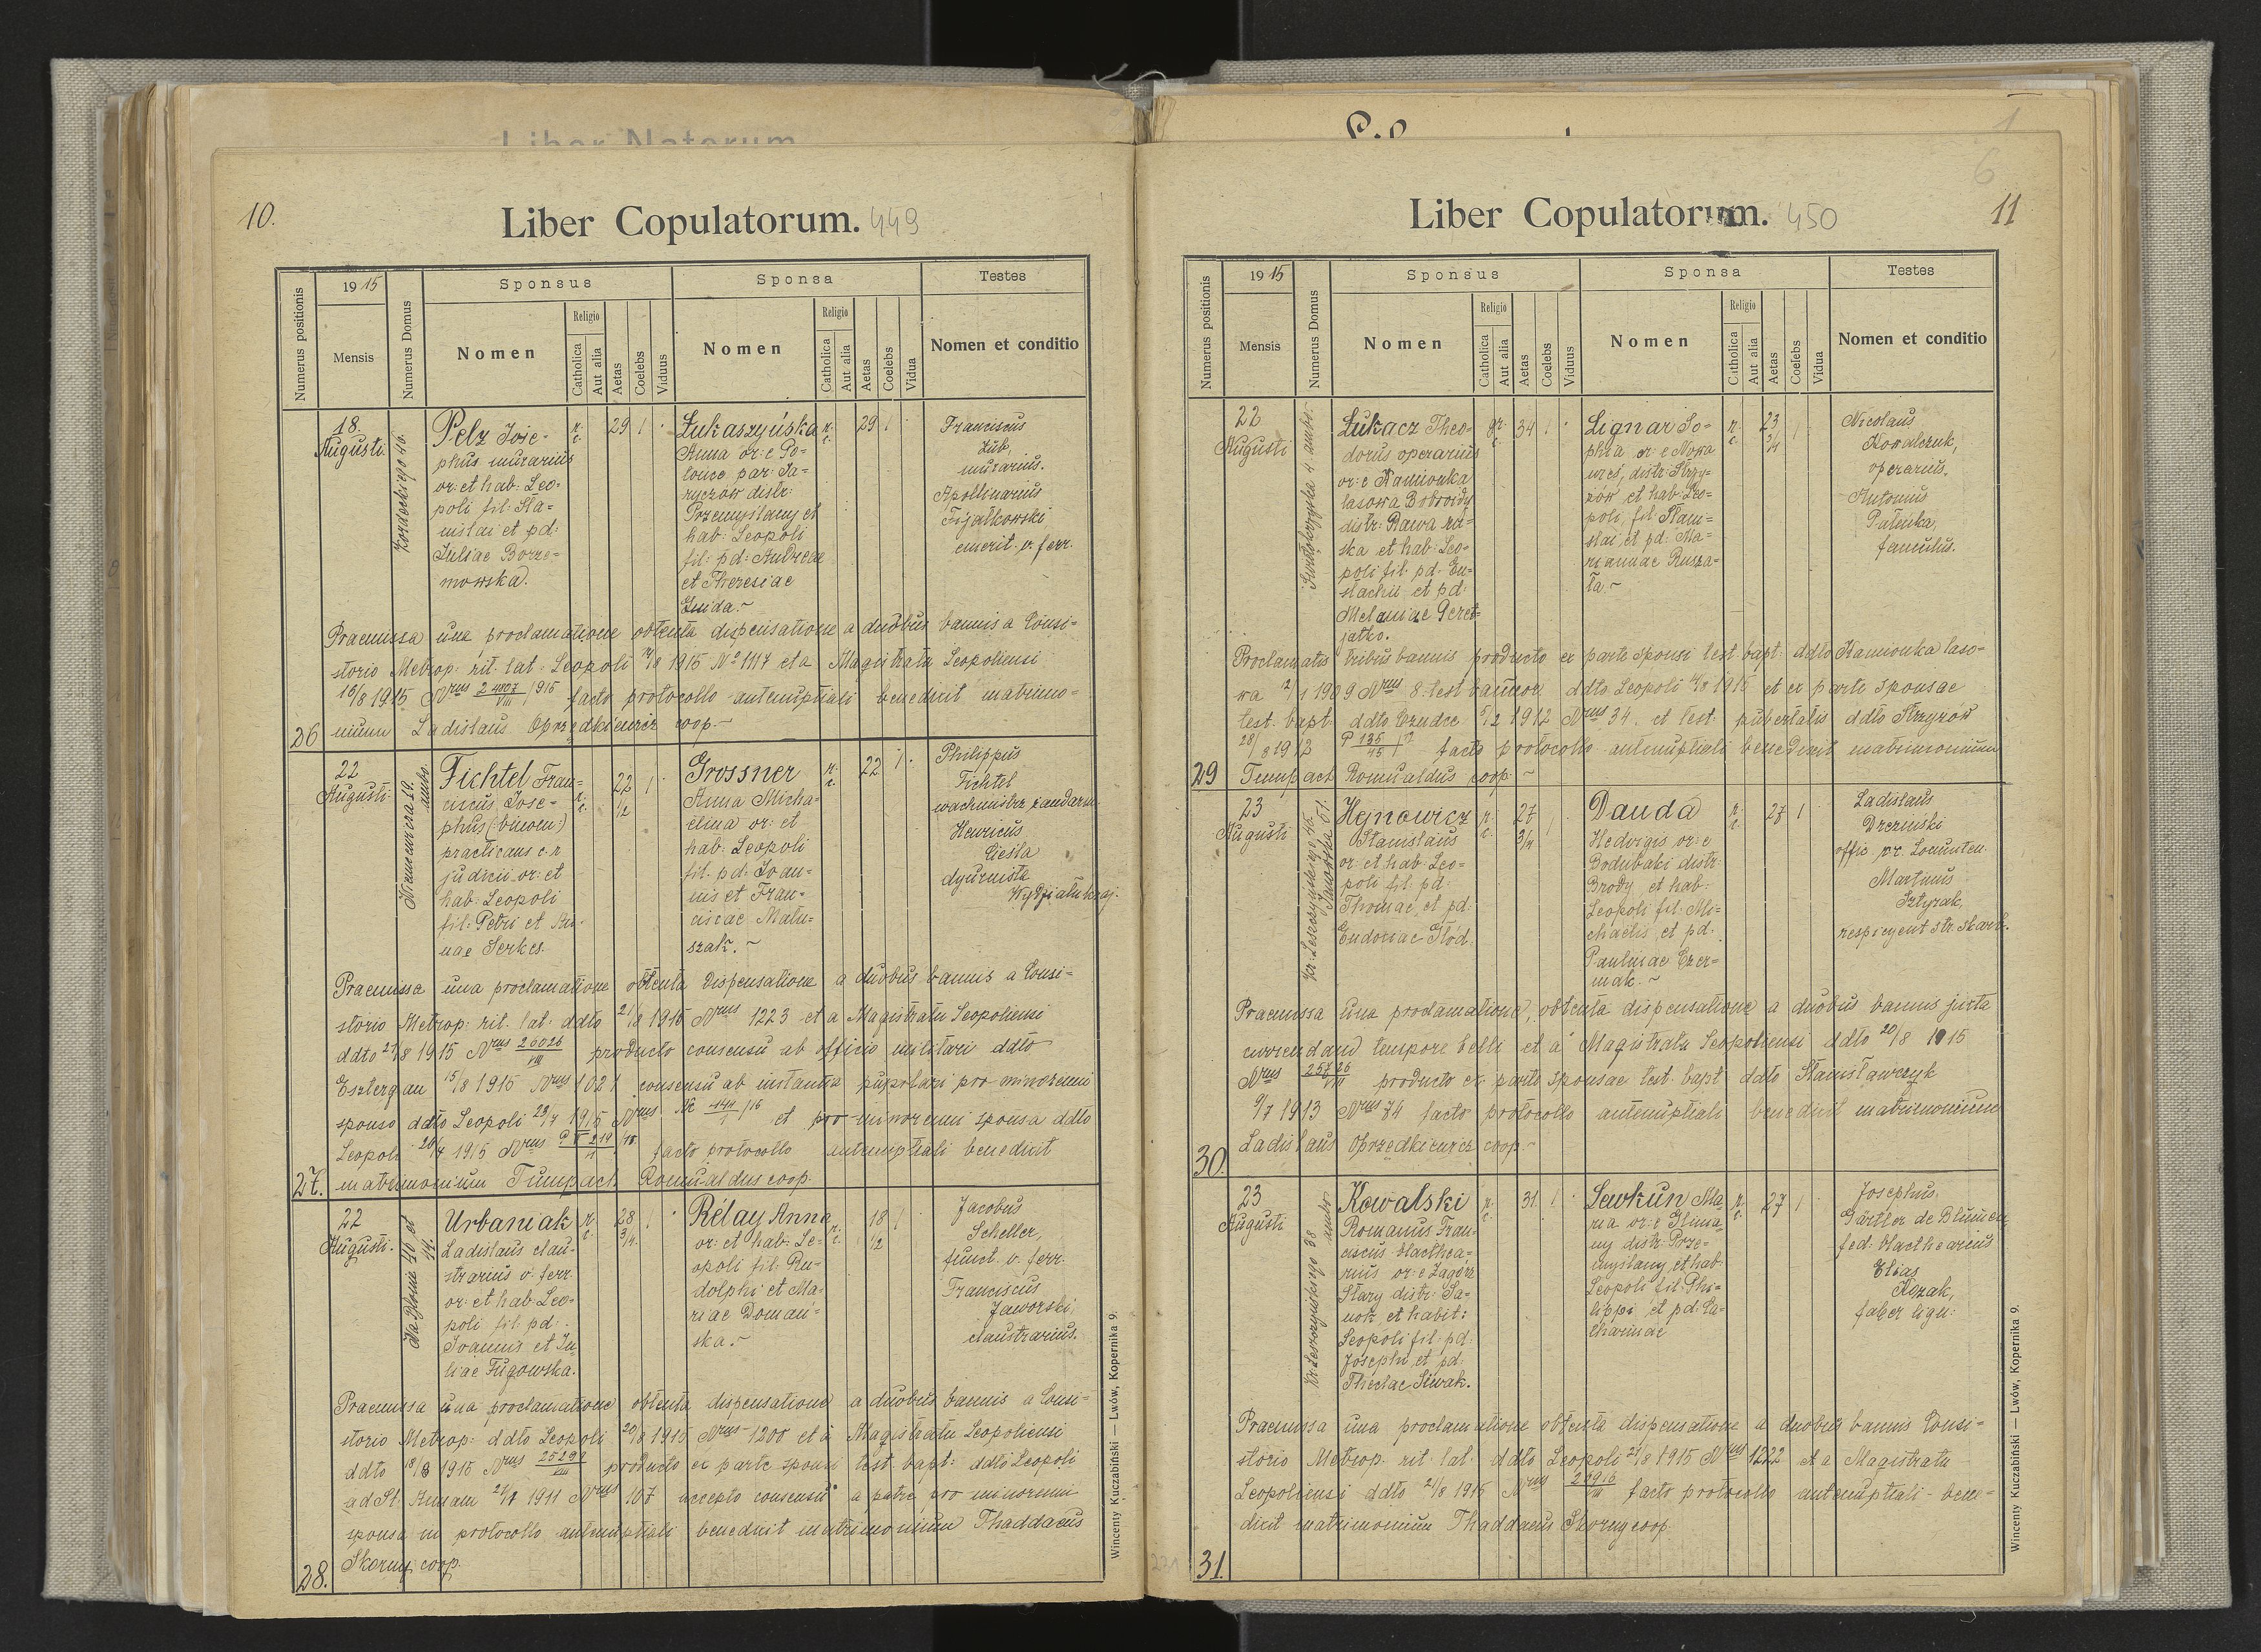 Liber Natorum
10.
Liber Copulatorum. 449
Numerus positionis
1915
Mensis
Numerus Domus
Sponsus
Nomen
Religio
Catholica
Aut alia
Aetas
Coelebs
Viduus
Sponsa
Nomen
Religio
Catholica
Aut alia
Aetas
Coelebs
Vidua
Testes
Nomen et conditio
18.
Augusti
Kordeckiego 46.
Pelz Jose-
phus murarius
or: et hab: Leo-
poli fil: Sta-
nislai et pd:
Juliae Borze-
mowska.
r. c.
29
1
Łukaszyńska
Anna or: e Po-
lonce par: Ja-
ryczów distr:
Przemyslany et
hab: Leopoli
fil: pd: Andreae
et Theresiae
r. c.
29
1
Franciscus
Zub,
murarius.
Apollinarius
Fijałkowski
emerit. v. ferr.
Praemissa una proclamatione obtenta dispensatione a duobus bannis a Consi-
storio Metrop: rit. lat: Leopoli 14/8 1915 No 1117 et a Magistratu Leopoliensi
16/8 1915 Nrus 24807/VIII/915 facto protocollo antenuptiali benedixit matrimo-
26 nium Ladislaus Oprzędkiewicz coop.
22
Augusti
Niemcewicza 19.
ambo.
Fichtel Fran-
ciscus Jose-
phus (:binom:)
practicans c. r.
judicii or: et
hab: Leopoli
fil: Petri et An-
nae Serkes.
r. c.
22
1/2
1
Grossner
Anna Micha-
elina or: et
hab: Leopoli
fil. pd: Joan-
nis et Fran-
ciscae Matu-
szak.
r. c.
22
1
Philippus
Fichtel
wachmistrz żandarm.
Henricus
Ciesla
dyurnista
Wydziału kraj.
Praemissa una proclamatione obtenta dispensatione a duobus bannis a Consi-
storio Metrop: rit. lat. ddto 21/8 1915 Nrus 1223 et a Magistratu Leopoliensi
ddto 21/8 1915 Nrus 26026/VIII producto consensu ab officio militari ddto
Esztergau 15/8 1915 Nrus 1021 consensu ab instantia pupilari pro minorenni
sponso ddto Leopoli 29/7 1915 Nrus et pro minorenni sponsa ddto
Leopoli 1915 Nrus facto protocollo antenuptiali benedixit
27. matrimonium Tumpach Romualdus coop.
22
Augusti.
Na Błonie 46 et
14.
Urbaniak
Ladislaus clau-
strarius v. ferr.
or: et hab: Leo-
poli fil: pd:
Joannis et Ju-
liae Fugowska.
r. c.
28
3/4
1
Rélay Anna
or: et hab: Le-
opoli fil: Ru-
dolphi et Ma-
riae Doman-
ska.
r. c.
18
1/2
1
Jacobus
Scheller,
funct. v. ferr.
Franciscus
Jaworski,
claustrarius.
Praemissa una proclamatione obtenta dispensatione a duobus bannis a Consi-
storio Metrop: ddto Leopoli 20/8 1915 Nrus 1200 et a Magistratu Leopoliensi
ddto 18/8 1915 Nrus producto ex parte sponsi test. bapt: ddto Leopoli
ad St. Annam 1911 Nrus 107 accepto consensu a patre pro minorenni
sponsa in protocollo antenuptiali benedixit matrimonium Thaddaeus
28. Skorny coop.
Wincenty Kuczabiński — Lwów, Kopernika 9.
6
11
Liber Copulatorum. 450
Numerus positionis
1915
Mensis
Numerus Domus
Sponsus
Nomen
Religio
Catholica
Aut alia
Aetas
Coelebs
Viduus
Sponsa
Nomen
Religio
Catholica
Aut alia
Aetas
Coelebs
Vidua
Testes
Nomen et conditio
22
Augusti
Świętokrzyska 4. ambo.
Łukacz Theo-
dorus operarius
or: e Kamionka
lasowa
distr: Rawa ru-
ska et hab: Leo-
poli fil: pd: Eu-
stachii et pd:
Melaniae Geret-
jatko.
gr. c.
34
1
Lignar So-
phia or: e Nowa
wieś, distr: Strzy-
żów et hab: Leo-
poli, fil: Stani-
slai et pd: Ma-
riannae Rusza-
ła.
r. c.
23
3/4
1
Nicolaus
Kowalczuk,
operarius.
Antonius
Pałeńka,
famulus.
Proclamatis tribus bannis producto ex parte sponsi test. bapt: ddto Kamionka laso-
wa 2/1 1909 Nrus 8. test bannor. ddto Leopoli 14/8 1915 et ex parte sponsae
test. bapt: ddto Czudec 5/2 1912 Nrus 34. et test: pubertatis ddto Strzyżów
28/8 1912 P 135/45/12 facto protocollo antenuptiali benedixit matrimonium
29 Tumpach Romualdus coop.
23
Augusti
Janowska 51.
Hejnowicz
Stanislaus
or: et hab: Leo-
poli fil: pd:
Thomae et pd:
Eudociae Głód.
r. c.
27
3/4
1
Dauda
Hedvigis or: e
Bodubaki distr:
Brody, et hab:
Leopoli fil: Mi-
chaelis et pd:
Paulinae Czer-
mak.
r. c.
27
1
Ladislaus
Drezinski
offic. pr. Locumten.
Martinus
Sztyrak,
respicyent str. skarb.
Praemissa una proclamatione, obtenta dispensatione a duobus bannis juxta
currendam tempore belli et a Magistratu Leopoliensi ddto 20/8 1915
Nrus 25726/VIII producto ex parte sponsae test. bapt. ddto Stanisławczyk
9/7 1913 Nrus 74 facto protocollo antenuptiali benedixit matrimonium
30. Ladislaus Oprzędkiewicz coop.
23
Augusti
38
ambo.
Kowalski
Romanus Fran-
ciscus blacthea-
rius or: e Zagórz
Stary distr: Sa-
nok et habit:
Leopoli fil: pd:
Josephi et pd:
Theclae Siwak.
r. c.
31.
1
Lewkun Ma-
ria or: e Glinia-
ny distr: Prze-
myslany et hab:
Leopoli fil: Phi-
lippi et pd: Ca-
tharinae
r. c.
27
1
Josephus
Gärtler de Blumen-
feld: blacthearius
Elias
Kozak,
faber lign:
Praemissa una proclamatione obtenta dispensatione a duobus bannis Consi-
storio Metrop. rit. lat. ddto Leopoli 21/8 1915 Nrus 1222 et a Magistratu
Leopoliensi ddto 21/8 1915 Nrus facto protocollo antenuptiali bene-
dixit matrimonium Thaddaeus Skorny coop.
31.
Wincenty Kuczabiński — Lwów, Kopernika 9.